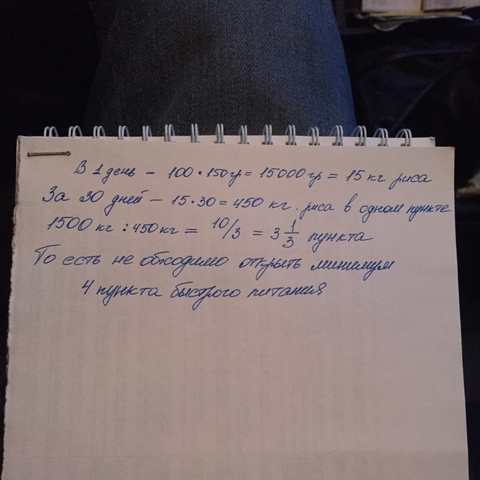 В 1 день – 100 • 150гр = 15000 гр = 15 кг риса
За 30 дней – 15 • 30 = 450 кг. риса в одном пункте
1500 кг : 450 кг = 10/3 = 3 1/3 пункта
То есть не обходимо открыть минимум
4 пункта быстрого питания